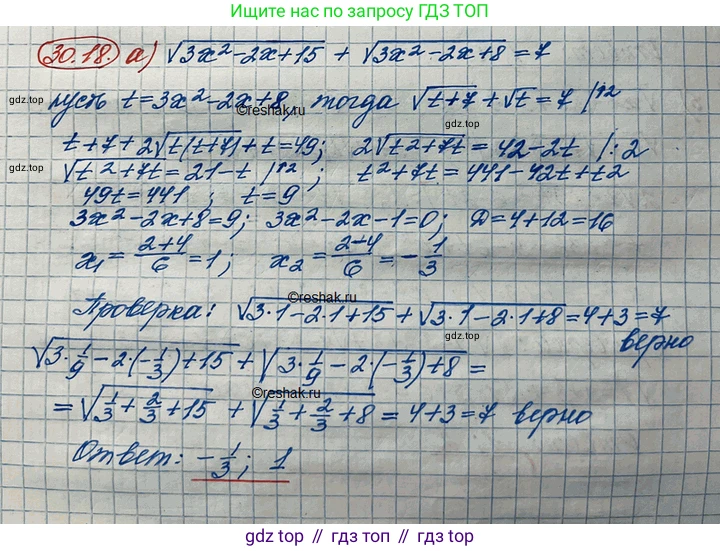 Ищите нас по запросу ГДЗ ТОП
30.18. а) √(3x²-2x+15) + √(3x²-2x+8) = 7
gdz.top
пусть t=3x²-2x+8, тогда √(t+7) + √t = 7 |↑2
©reshak.ru
gdz.top
t+7+2√(t(t+7))+t=49; 2√(t²+7t)=42-2t |:2
gdz.top
√(t²+7t)=21-t |↑2; t²+7t=441-42t+t2
49t=441; t=9
3x²-2x+8=9; 3x²-2x-1=0; D=4+12=16
x₁= (2+4)/6 =1; x₂ = (2-4)/6 = -1/3
©reshak.ru
Проверка: √(3·1-2·1+15) + √(3·1-2·1+8) =4+3=7
gdz.top
верно
√(3·1/9-2·(-1/3)+15) + √(3·1/9-2·(-1/3)+8) =
©reshak.ru
= √(1/3+2/3+15) + √(1/3+2/3+8) = 4+3=7 верно
Ответ: -1/3; 1
gdz.top // гдз топ // gdz.top